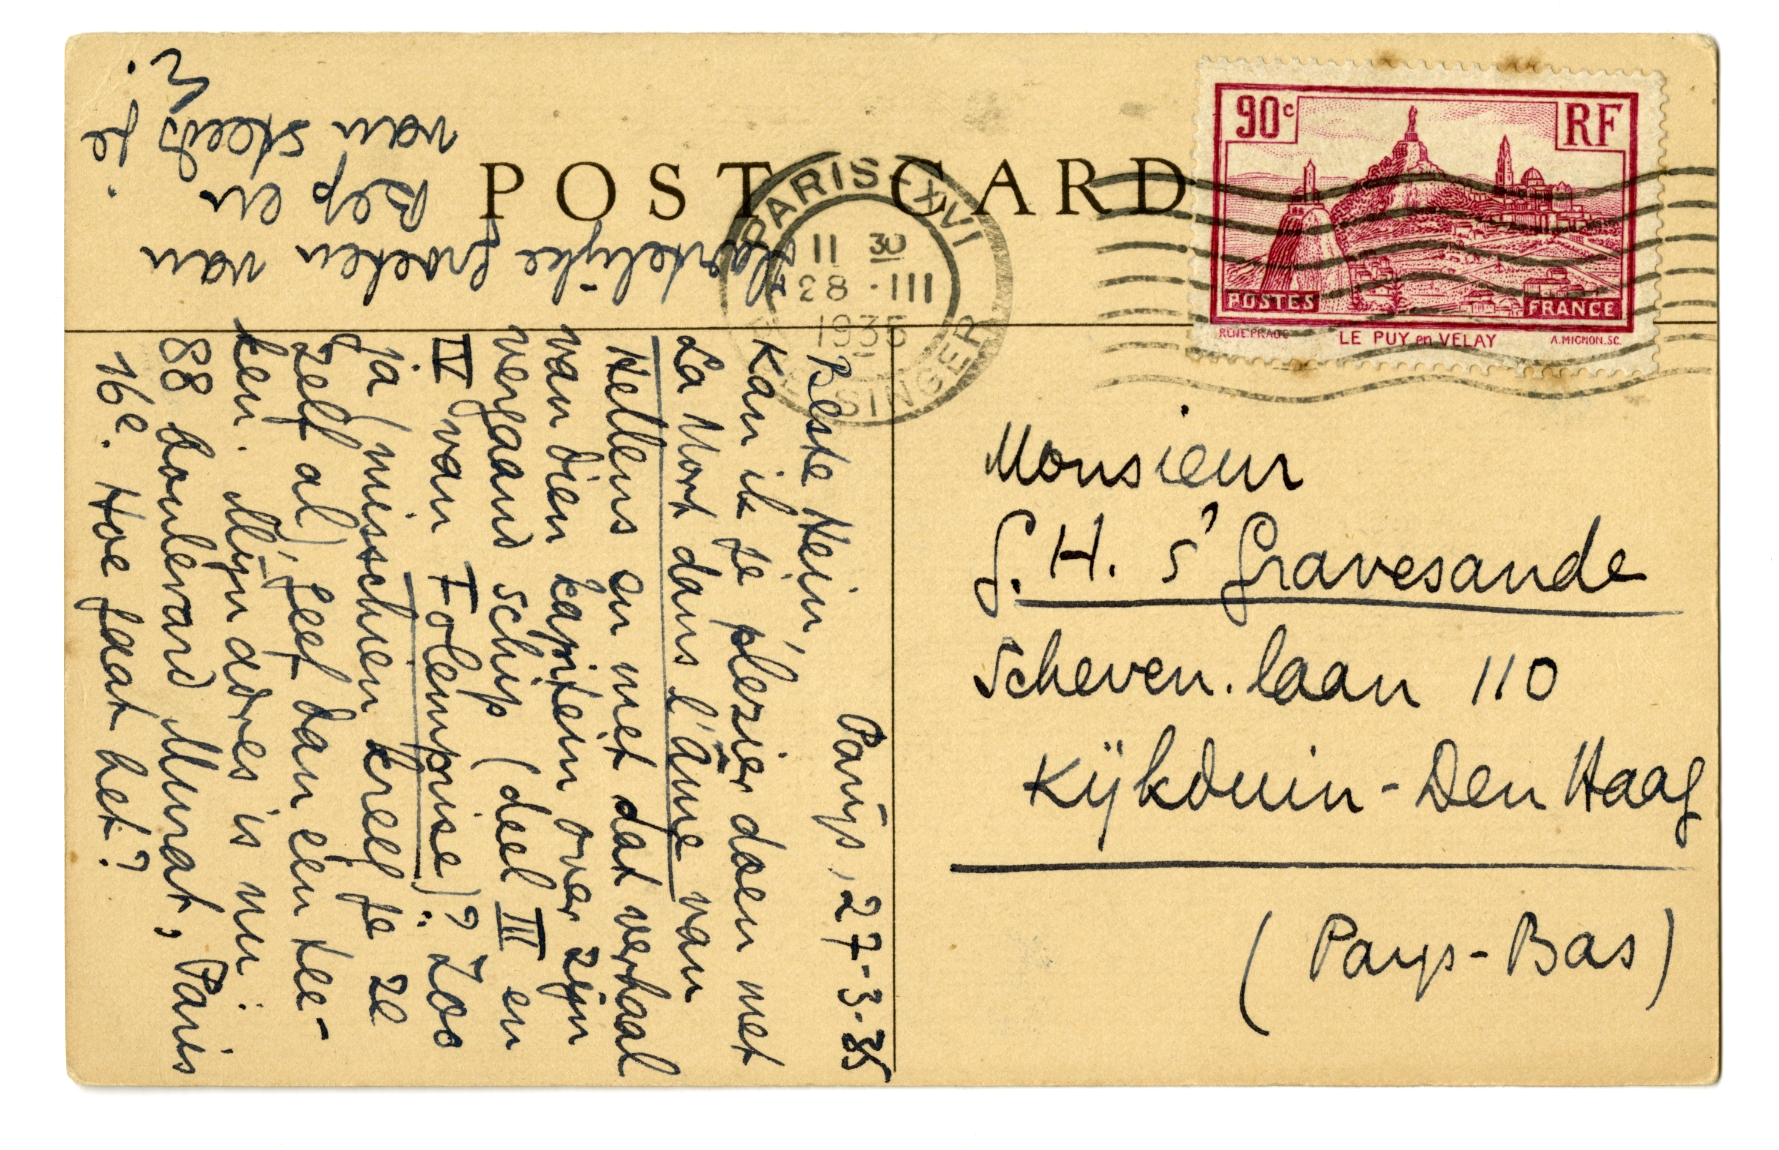 POST CARD
PARIS-XVI
11 30
28 · III
1935
SINGER
90c
RF
POSTES
FRANCE
LE PUY en VELAY
A.MIGNON.SC.
Parijs, 27-3-35
Beste Hein,
Kan ik je plezier doen met
La Mort dans l'âme van
Hellens en met dat verhaal
van dien kapitein over zijn
vergaand schip (deel III en
IV van Folemprise)? Zoo
ja (misschien kreeg je ze
zelf al), geef dan een tee-
ken. Mijn adres is nu:
88 boulevard Murat, Paris
16e. Hoe gaat het?
Hartelijke groeten van
Bep en
van steeds je
E.
Monsieur
G. H. s' Gravesande
Scheven. laan 110
Kijkduin - Den Haag
(Pays-Bas)